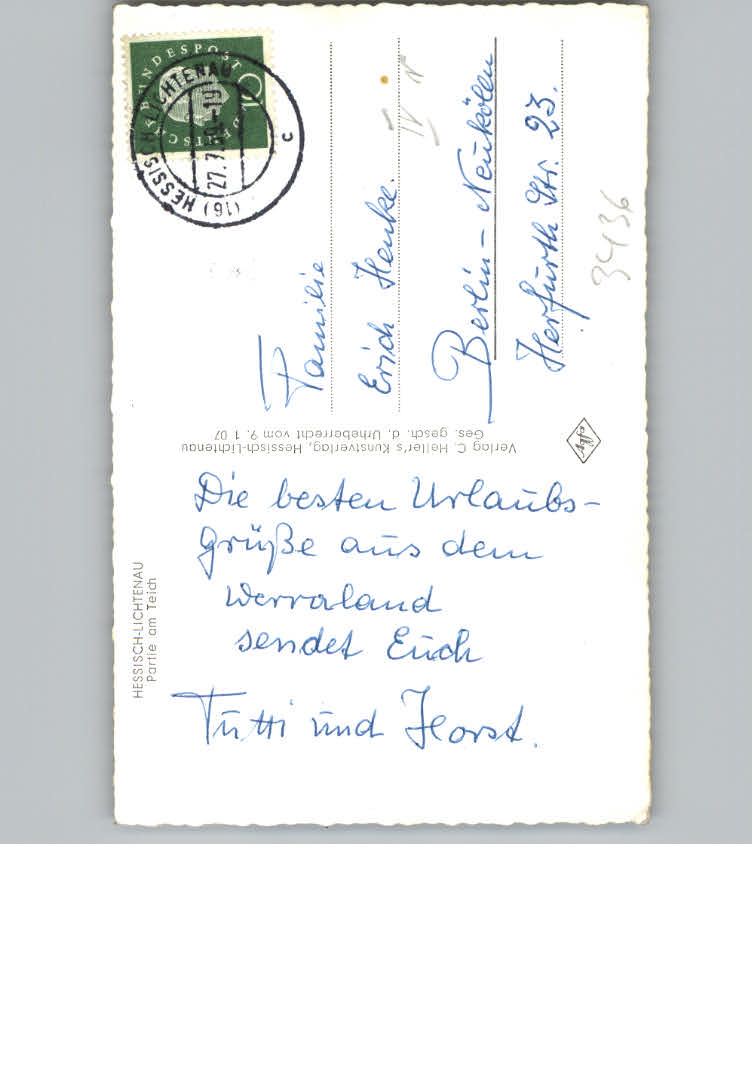 HESSISCH-LICHTENAU
Partie am Teich
Die besten Urlaubs-
grüße aus dem
Werraland
sendet Euch
Tutti und Horst.
Verlag C. Heller's Kunstverlag, Hessisch-Lichtenau
Ges. gesch. d. Urheberrecht vom 9. 1 07
efby
DEUTSCHE BUNDESPOST
(16) HESSISCH LICHTENAU
c
Familie
Erich Henke.
Berlin - Neukölln
Herfurth Str. 23.
IV N
34136